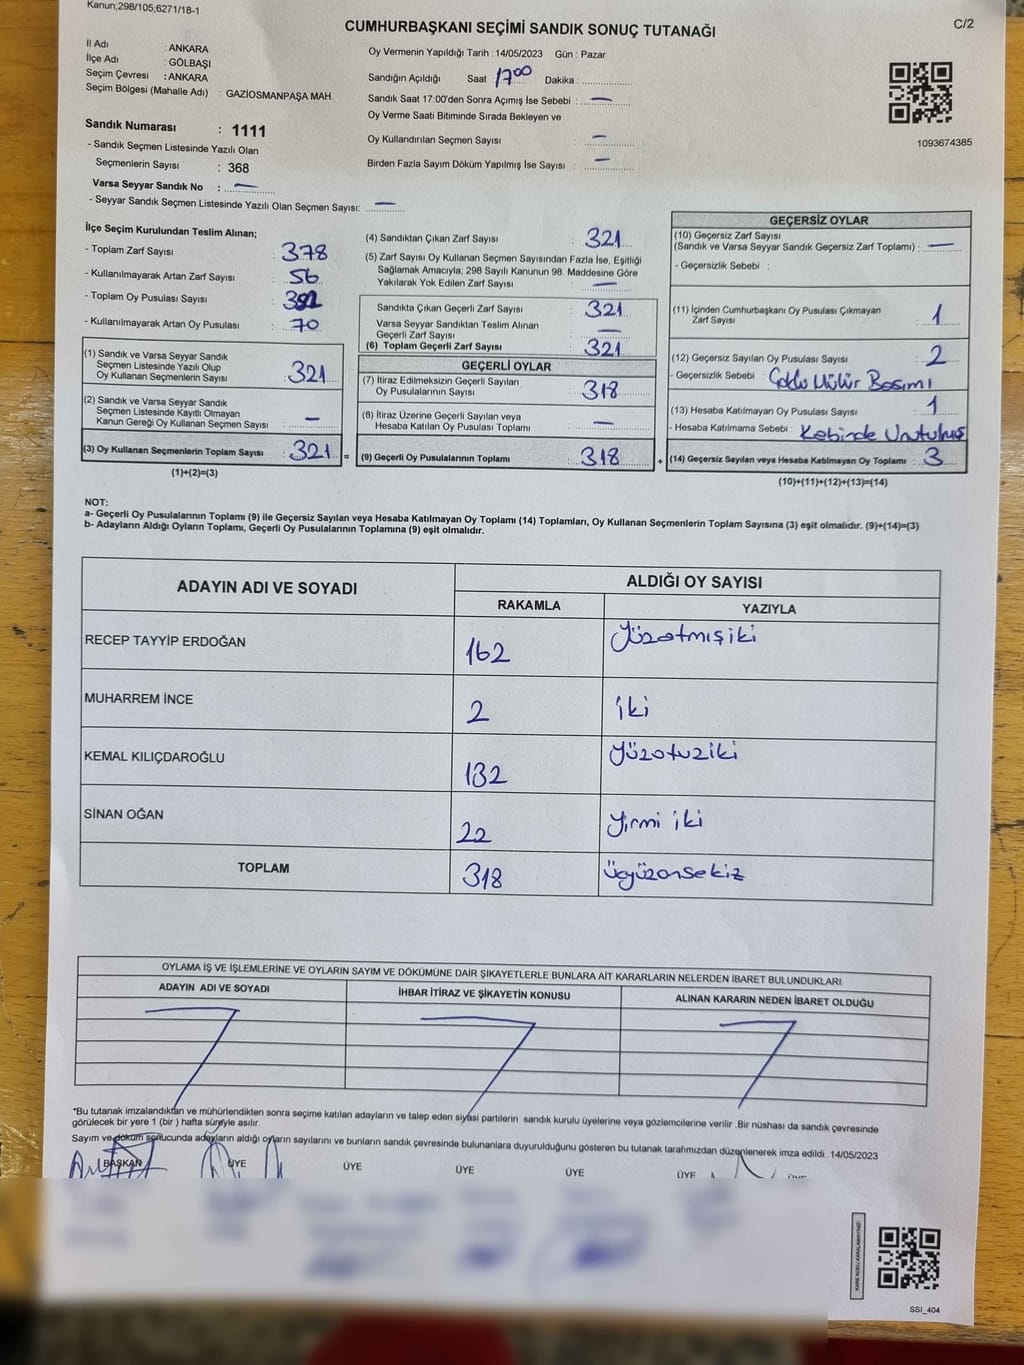 Kanun;298/105;6271/18-1
C/2
CUMHURBAŞKANI SEÇİMİ SANDIK SONUÇ TUTANAĞI
İl Adı : ANKARA
İlçe Adı : GÖLBAŞI
Seçim Çevresi : ANKARA
Seçim Bölgesi (Mahalle Adı) : GAZİOSMANPAŞA MAH.
Sandık Numarası : 1111
- Sandık Seçmen Listesinde Yazılı Olan
Seçmenlerin Sayısı : 368
Varsa Seyyar Sandık No : —
- Seyyar Sandık Seçmen Listesinde Yazılı Olan Seçmen Sayısı: —
Oy Vermenin Yapıldığı Tarih : 14/05/2023 Gün : Pazar
Sandığın Açıldığı Saat 1700 Dakika :
Sandık Saat 17:00'den Sonra Açımış İse Sebebi : —
Oy Verme Saati Bitiminde Sırada Bekleyen ve
Oy Kullandırılan Seçmen Sayısı : —
Birden Fazla Sayım Döküm Yapılmış İse Sayısı : —
1093674385
İlçe Seçim Kurulundan Teslim Alınan;
- Toplam Zarf Sayısı : 378
- Kullanılmayarak Artan Zarf Sayısı : 56
- Toplam Oy Pusulası Sayısı :
- Kullanılmayarak Artan Oy Pusulası : 70
(1) Sandık ve Varsa Seyyar Sandık
Seçmen Listesinde Yazılı Olup
Oy Kullanan Seçmenlerin Sayısı : 321
(2) Sandık ve Varsa Seyyar Sandık
Seçmen Listesinde Kayıtlı Olmayan
Kanun Gereği Oy Kullanan Seçmen Sayısı : —
(3) Oy Kullanan Seçmenlerin Toplam Sayısı : 321 =
(1)+(2)=(3)
(4) Sandıktan Çıkan Zarf Sayısı : 321
(5) Zarf Sayısı Oy Kullanan Seçmen Sayısından Fazla İse, Eşitliği
Sağlamak Amacıyla; 298 Sayılı Kanunun 98. Maddesine Göre
Yakılarak Yok Edilen Zarf Sayısı : —
Sandıkta Çıkan Geçerli Zarf Sayısı : 321
Varsa Seyyar Sandıktan Teslim Alınan
Geçerli Zarf Sayısı : —
(6) Toplam Geçerli Zarf Sayısı : 321
GEÇERLİ OYLAR
(7) İtiraz Edilmeksizin Geçerli Sayılan
Oy Pusulalarının Sayısı : 318
(8) İtiraz Üzerine Geçerli Sayılan veya
Hesaba Katılan Oy Pusulası Toplamı : —
(9) Geçerli Oy Pusulalarının Toplamı : 318 +
GEÇERSİZ OYLAR
(10) Geçersiz Zarf Sayısı
(Sandık ve Varsa Seyyar Sandık Geçersiz Zarf Toplamı) : —
- Geçersizlik Sebebi :
(11) İçinden Cumhurbaşkanı Oy Pusulası Çıkmayan
Zarf Sayısı : 1
(12) Geçersiz Sayılan Oy Pusulası Sayısı : 2
- Geçersizlik Sebebi : Çoklu Mühür Basımı
(13) Hesaba Katılmayan Oy Pusulası Sayısı : 1
- Hesaba Katılmama Sebebi : Kabinde Unutulmuş
(14) Geçersiz Sayılan veya Hesaba Katılmayan Oy Toplamı : 3
(10)+(11)+(12)+(13)=(14)
NOT:
a- Geçerli Oy Pusulalarının Toplamı (9) ile Geçersiz Sayılan veya Hesaba Katılmayan Oy Toplamı (14) Toplamları, Oy Kullanan Seçmenlerin Toplam Sayısına (3) eşit olmalıdır. (9)+(14)=(3)
b- Adayların Aldığı Oyların Toplamı, Geçerli Oy Pusulalarının Toplamına (9) eşit olmalıdır.
ADAYIN ADI VE SOYADI
ALDIĞI OY SAYISI
RAKAMLA YAZIYLA
RECEP TAYYİP ERDOĞAN 162 Yüzatmışiki
MUHARREM İNCE 2 iki
KEMAL KILIÇDAROĞLU 132 Yüzotuziki
SİNAN OĞAN 22 Yirmi iki
TOPLAM 318 Üçyüzonsekiz
OYLAMA İŞ VE İŞLEMLERİNE VE OYLARIN SAYIM VE DÖKÜMÜNE DAİR ŞİKAYETLERLE BUNLARA AİT KARARLARIN NELERDEN İBARET BULUNDUKLARI
ADAYIN ADI VE SOYADI
İHBAR İTİRAZ VE ŞİKAYETİN KONUSU
ALINAN KARARIN NEDEN İBARET OLDUĞU
*Bu tutanak imzalandıktan ve mühürlendikten sonra seçime katılan adayların ve talep eden siyasi partilerin sandık kurulu üyelerine veya gözlemcilerine verilir .Bir nüshası da sandık çevresinde
görülecek bir yere 1 (bir ) hafta süreyle asılır.
Sayım ve döküm sonucunda adayların aldığı oyların sayılarını ve bunların sandık çevresinde bulunanlara duyurulduğunu gösteren bu tutanak tarafımızdan düzenlenerek imza edildi. 14/05/2023
BAŞKAN ÜYE ÜYE ÜYE ÜYE ÜYE
SSI_404